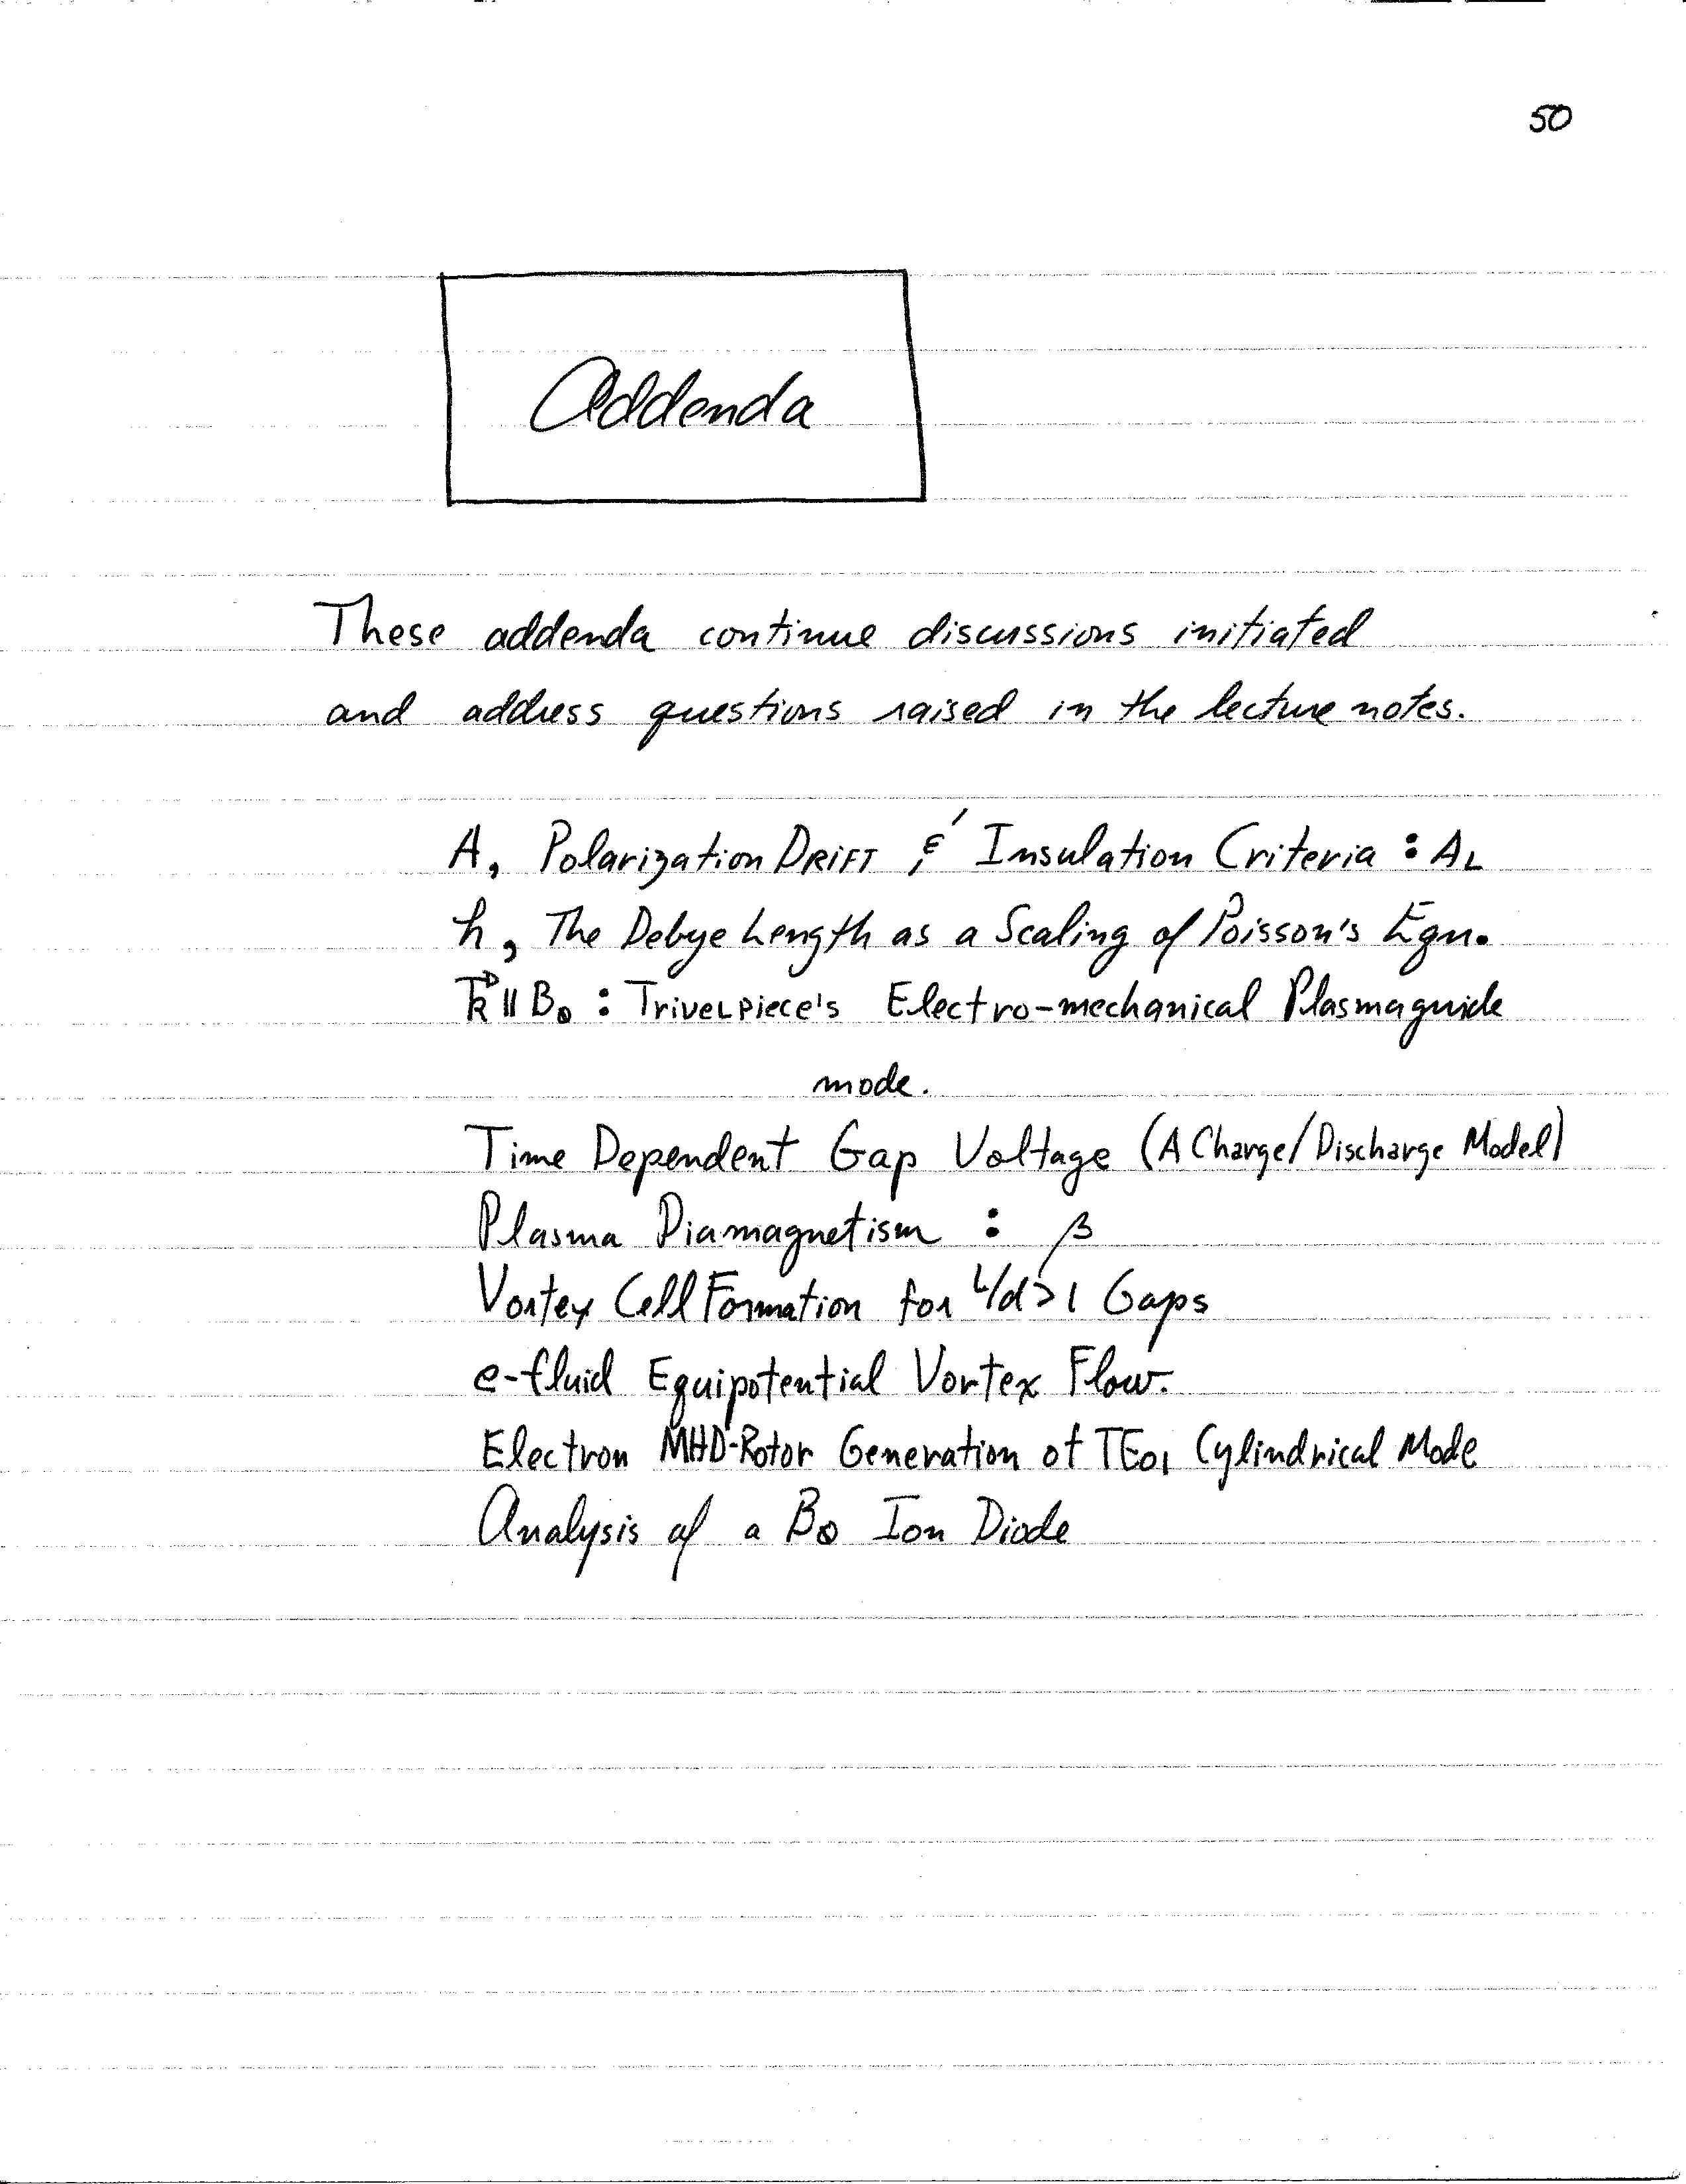 50
Addenda
These addenda continue discussions initiated
and address questions raised in the lecture notes.
A, Polarization DRIFT & Insulation Criteria : AL
h, The Debye Length as a Scaling of Poisson's Eqn.
k⃗ || B₀ : Trivelpiece's Electro-mechanical Plasmaguide
mode.
Time Dependent Gap Voltage (A Charge/Discharge Model)
Plasma Diamagnetism : β
Vortex Cell Formation for L/d>1 Gaps
e-fluid Equipotential Vortex Flow.
Electron MHD-Rotor Generation of TE₀₁ Cylindrical Mode
Analysis of a B₀ Ion Diode